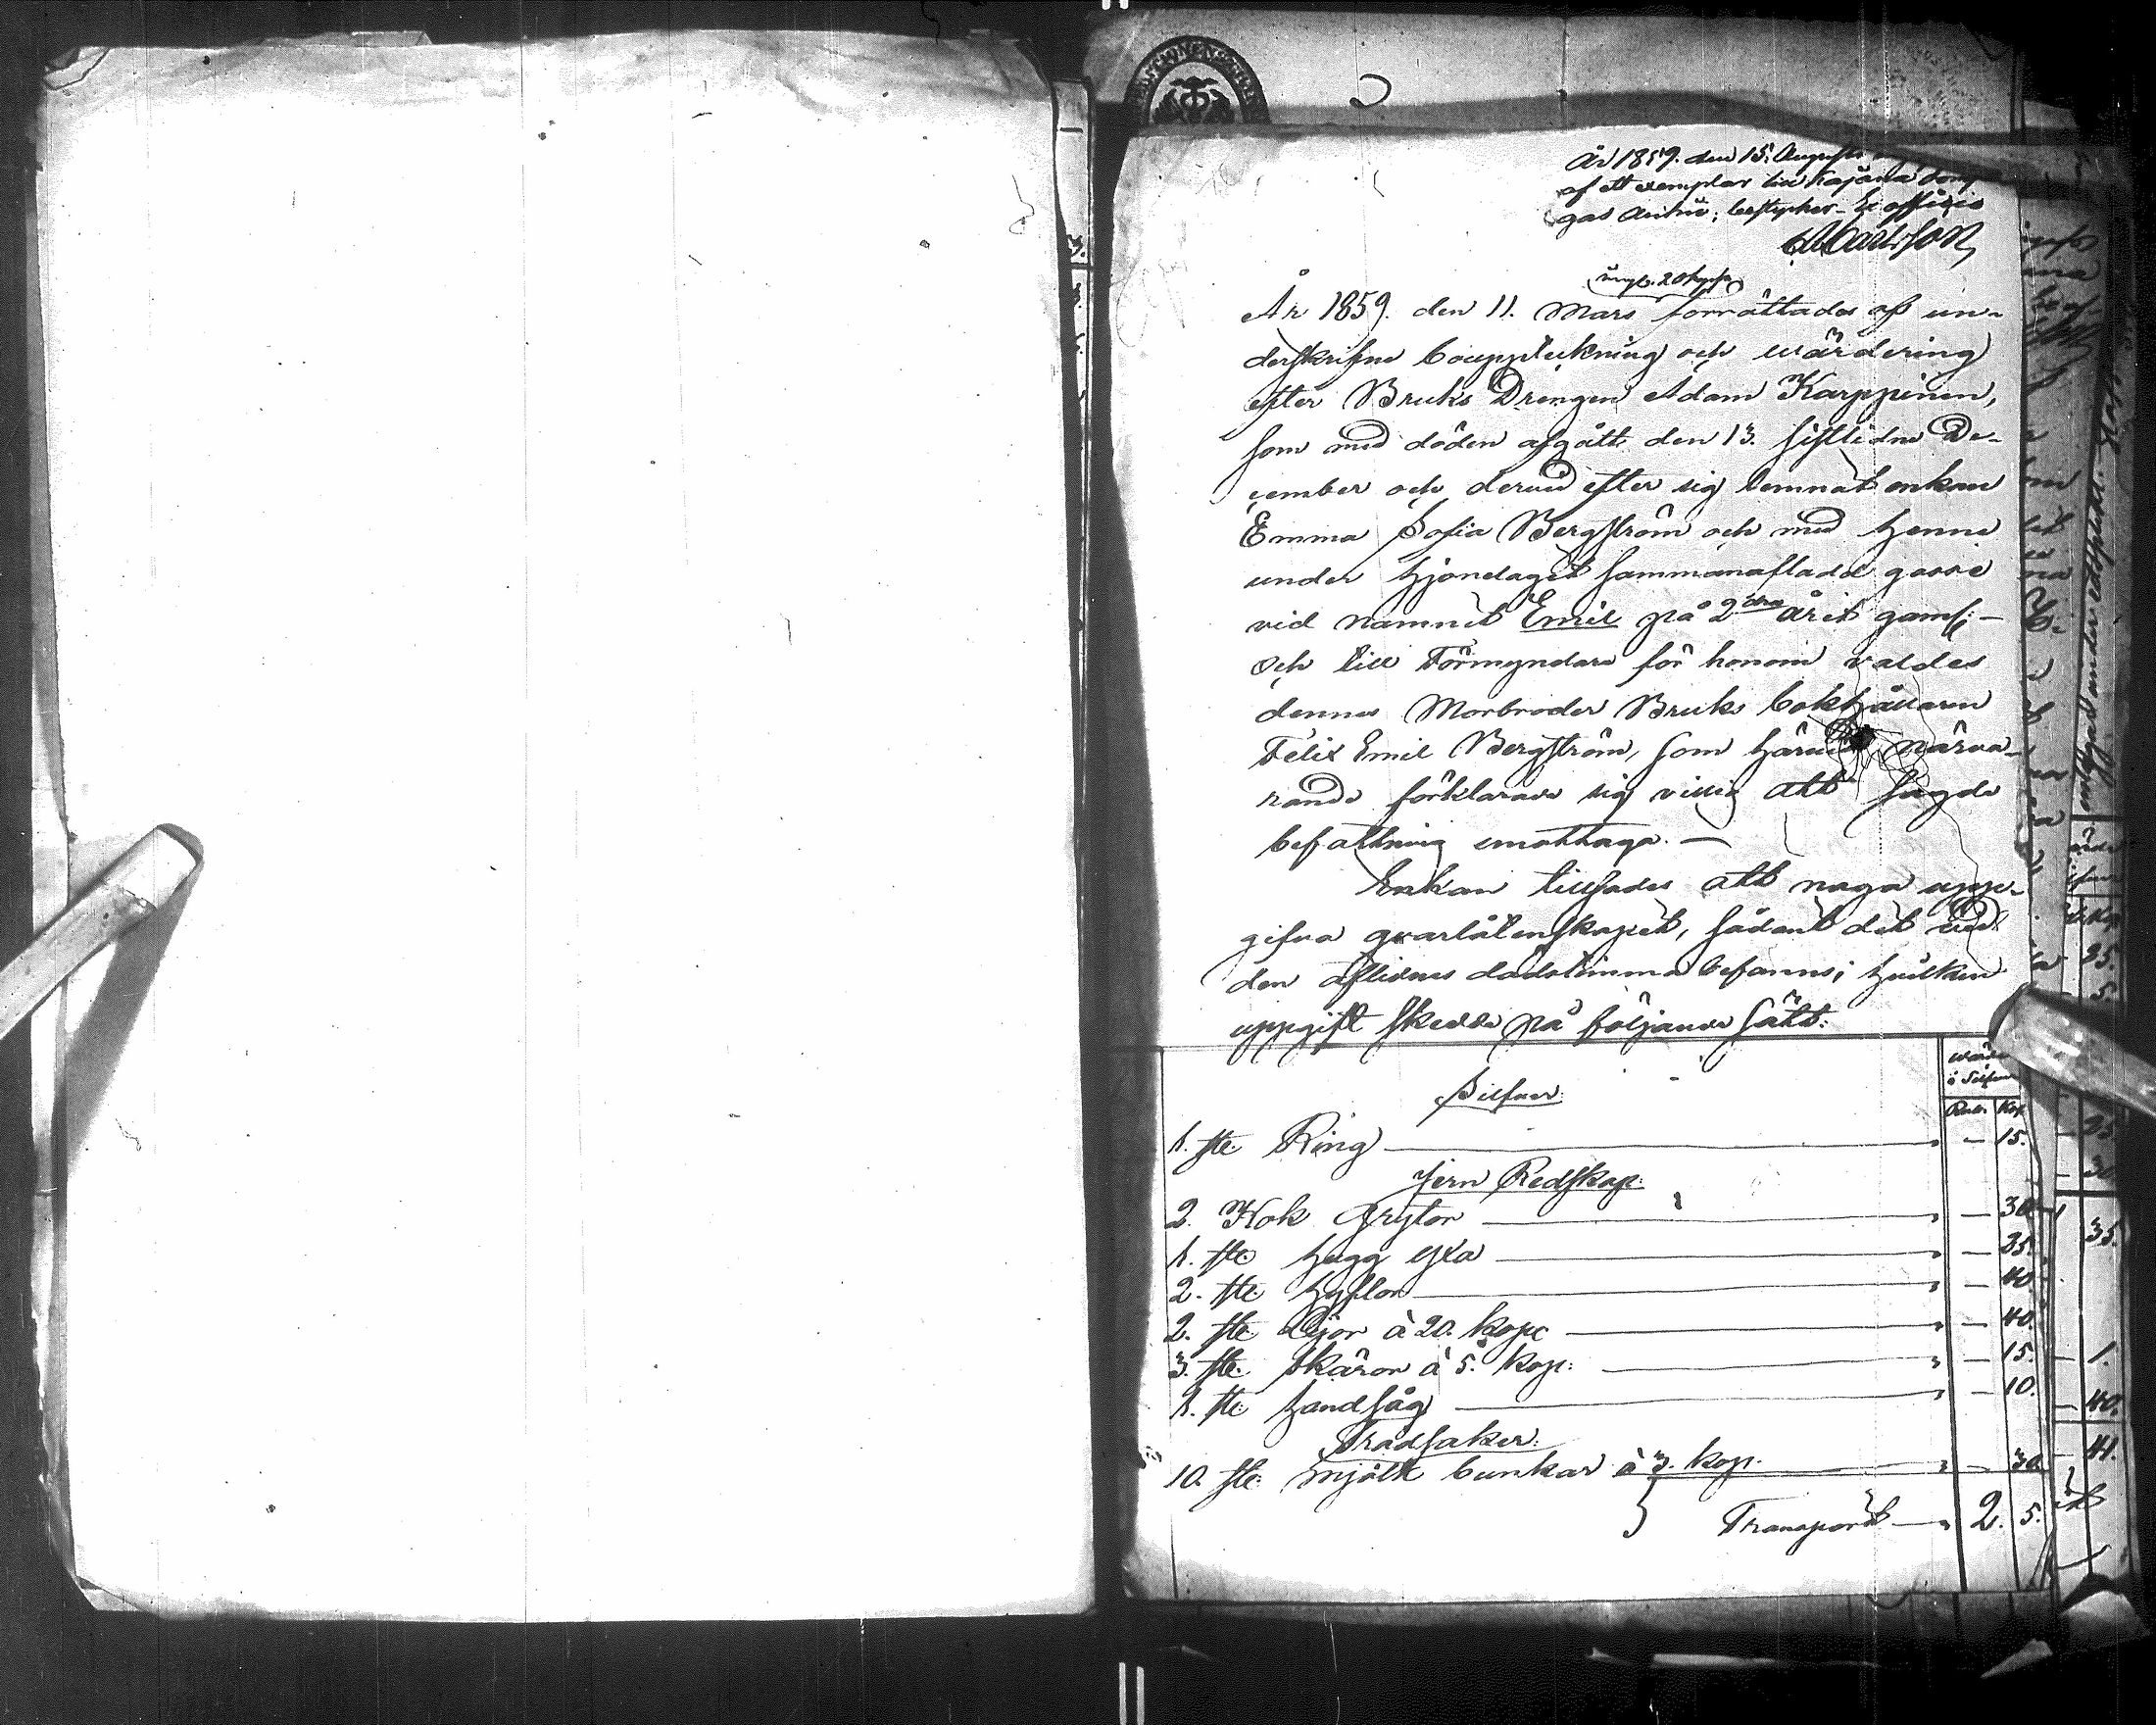 År 1859. den 15. Augusti
af ett exemplar till Kajana
gas Archiv; bestyrker Ex officio
År 1859. den 11. Mars förrättades af un-
derskrifne bouppteckning och wärdering
efter Bruks Drengen Adam Karppinen,
som med döden afgått den 13. sistledne De-
cember och dervid efter sig lemnat enkan
Emma Sofia Bergström och med henne
under hjonelaget sammanaflade gosse
vid namnet Emil på 2dra året gam̄l:-
och till Förmyndare för honom valdes
dennes Morbroder Bruks bokhållaren
Felix Emil Bergström, som härvid närva-
rande förklarade sig villig att sagde
befattning emottaga. —
Enkan tillsades att noga upp-
gifva qvarlåtenskapet, sådant det vid
den aflidnes dödstimma befanns; hvilken
uppgift skedde på följande sätt:
Wärde
i Silfver
Rub. Kop.
Silfver
1. ste. Ring — 15.
Jern Redskap:
2. Kok Grytor — 30
1. ste. hugg yxa — 35.
2. ste. hyflar — 40.
2. ste. Lijor à 20. kop: — 40.
3. ste. skäror à 5. kop: — 15.
1. ste. handsåg — 10.
Trädsaker:
10. ste. mjölk bunkar à 3. kop. — 30
Transport — 2. 5.